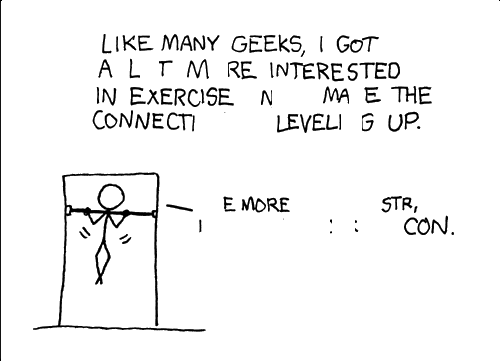 LIKE MANY GEEKS, I GOT
A L T M RE INTERESTED
IN EXERCISE N MA E THE
CONNECTI LEVELI G UP.
E MORE STR,
: : CON.